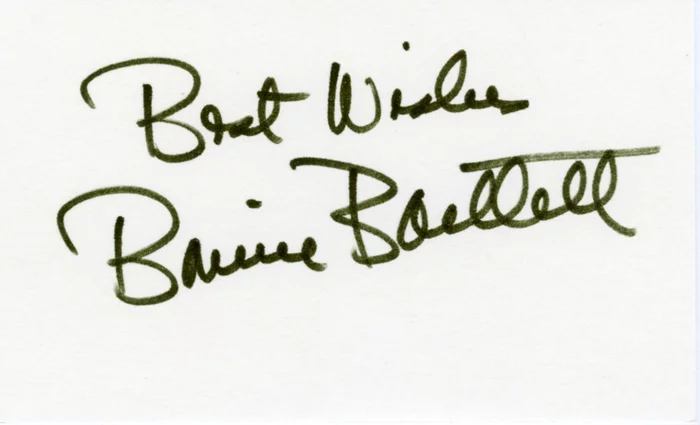 Best Wishes
Bonnie Bartlett